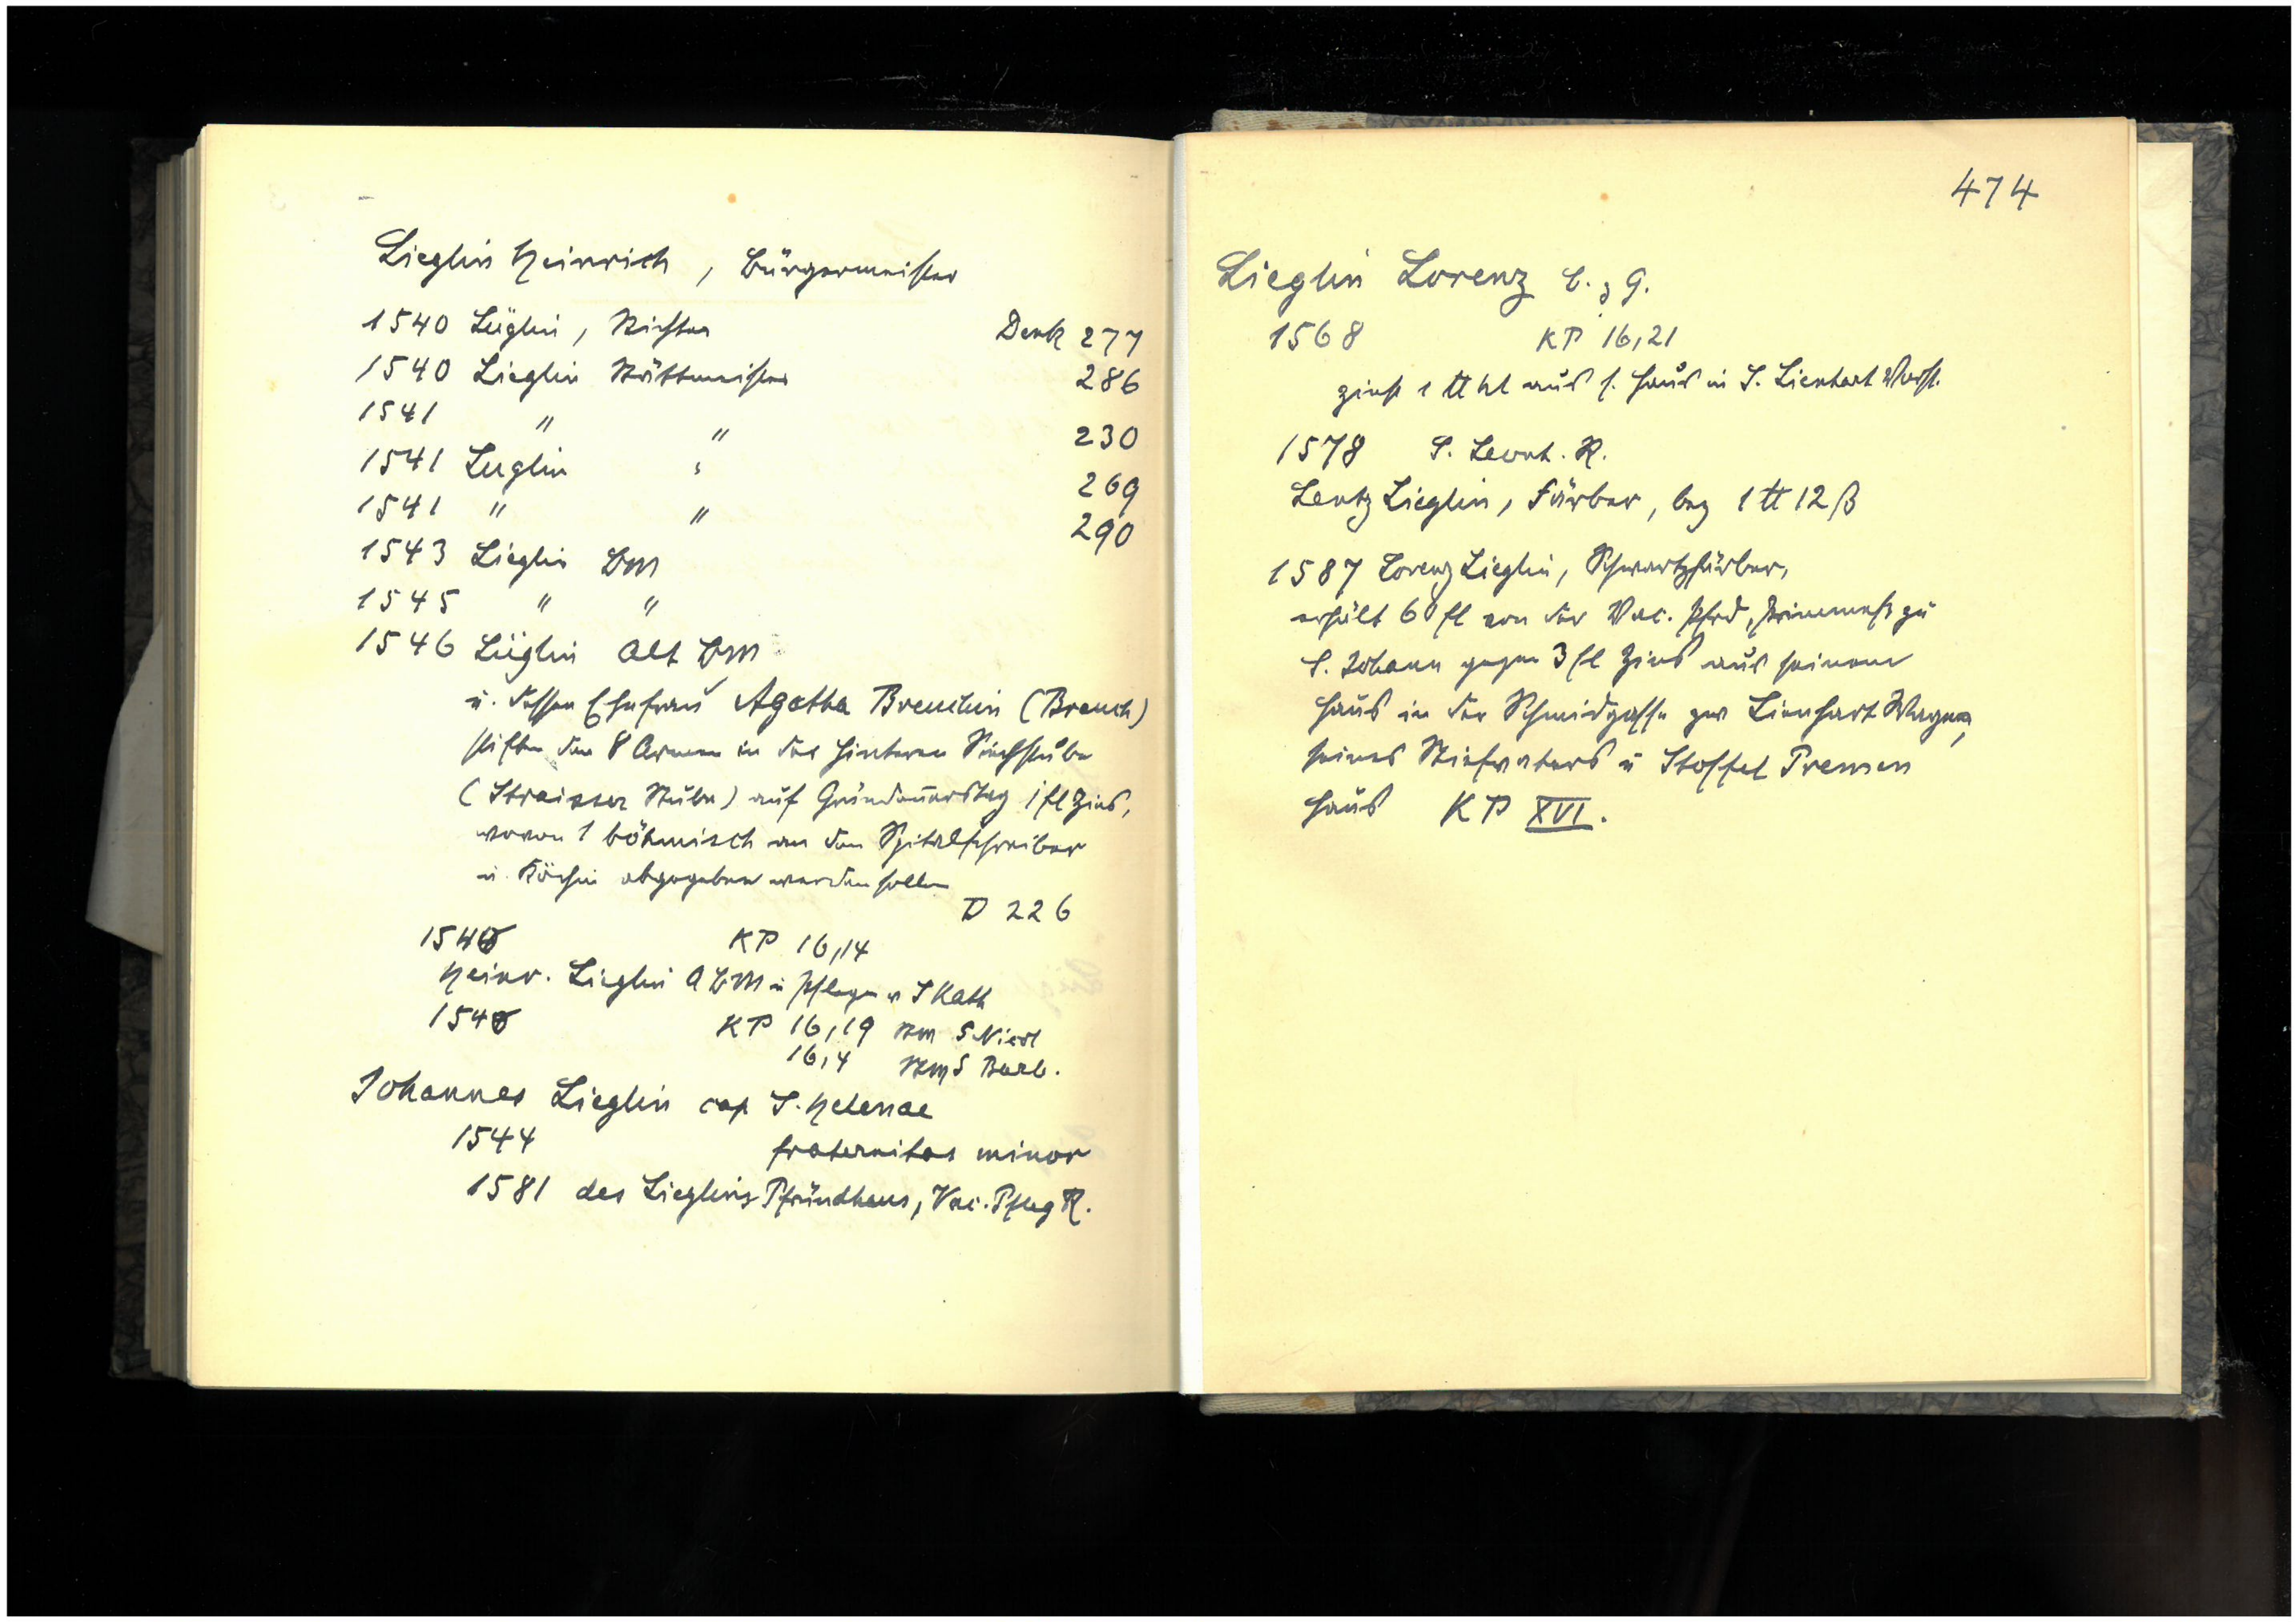 Lieglin Heinrich, Bürgermeister
1540 Lüglin, Richter Denk 277
1540 Lieglin Stättmeister 286
1541 " " 230
1541 Luglin " 269
1541 " " 290
1543 Lieglin BM
1545 " "
1546 Lüglin Alt BM
u. dessen Ehefrau Agatha Breuchin (Brauch)
stiften den 8 Armen in der hinteren Siechstube
(Straisser Stube) auf Gründonnerstag 1 fl Zins,
wovon 1 böhmisch an den Spitalschreiber
u. Köchin abgegeben werden sollen
D 226
KP 16,14
Heinr. Lieglin A BM u Pfleger v S Kath
KP 16,19 S Nicol
16,4 S Barb.
Johannes Lieglin cap S. Helenae
1544 fraternitas minor
1581 des Lieglins Pfründhaus, Vac. Pfleg R.
474
Lieglin Lorenz b. z G.
1568 KP 16,21
zinst 1 ℔ hl aus s. Haus in S. Lienhart Vorst.
1578 S. Leonh. R.
Lentz Lieglin, Färber, bez 1 ℔ 12 ß
1587 Lorenz Lieglin, Schwartzfärber,
erhält 60 fl von der Vac. Pfrd, Primmess zu
S. Johann gegen 3 fl Zins aus seinem
Haus in der Schmidgasse zw Lienhart Wagner,
seines Stiefvaters u Stoffel Premen
Haus KP XVI.